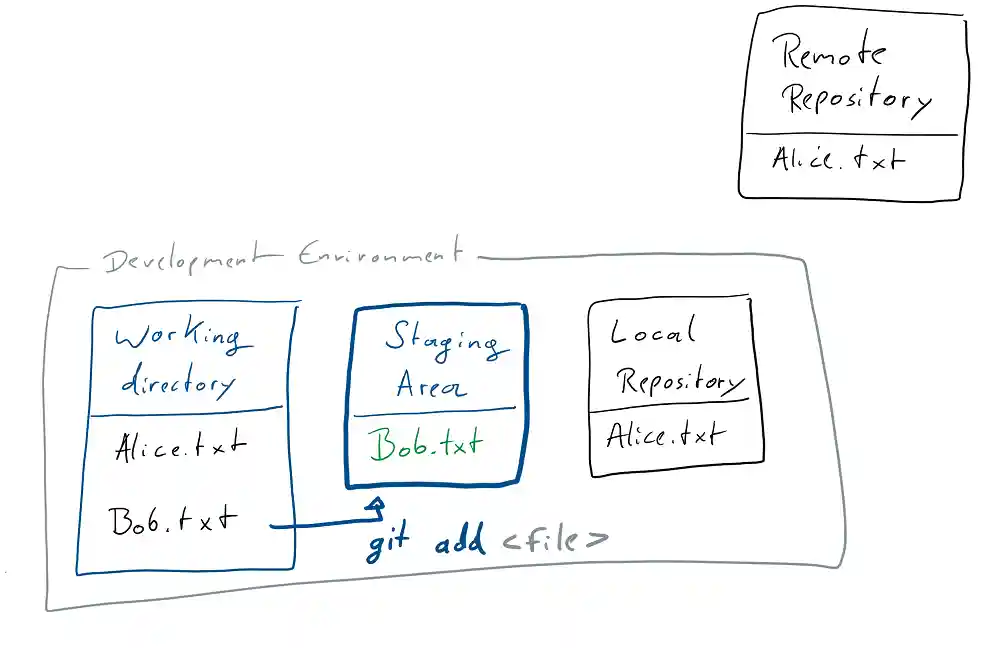 Remote
Repository
Alice.txt
Development Environment
Working
directory
Alice.txt
Bob.txt
Staging
Area
Bob.txt
git add <file>
Local
Repository
Alice.txt